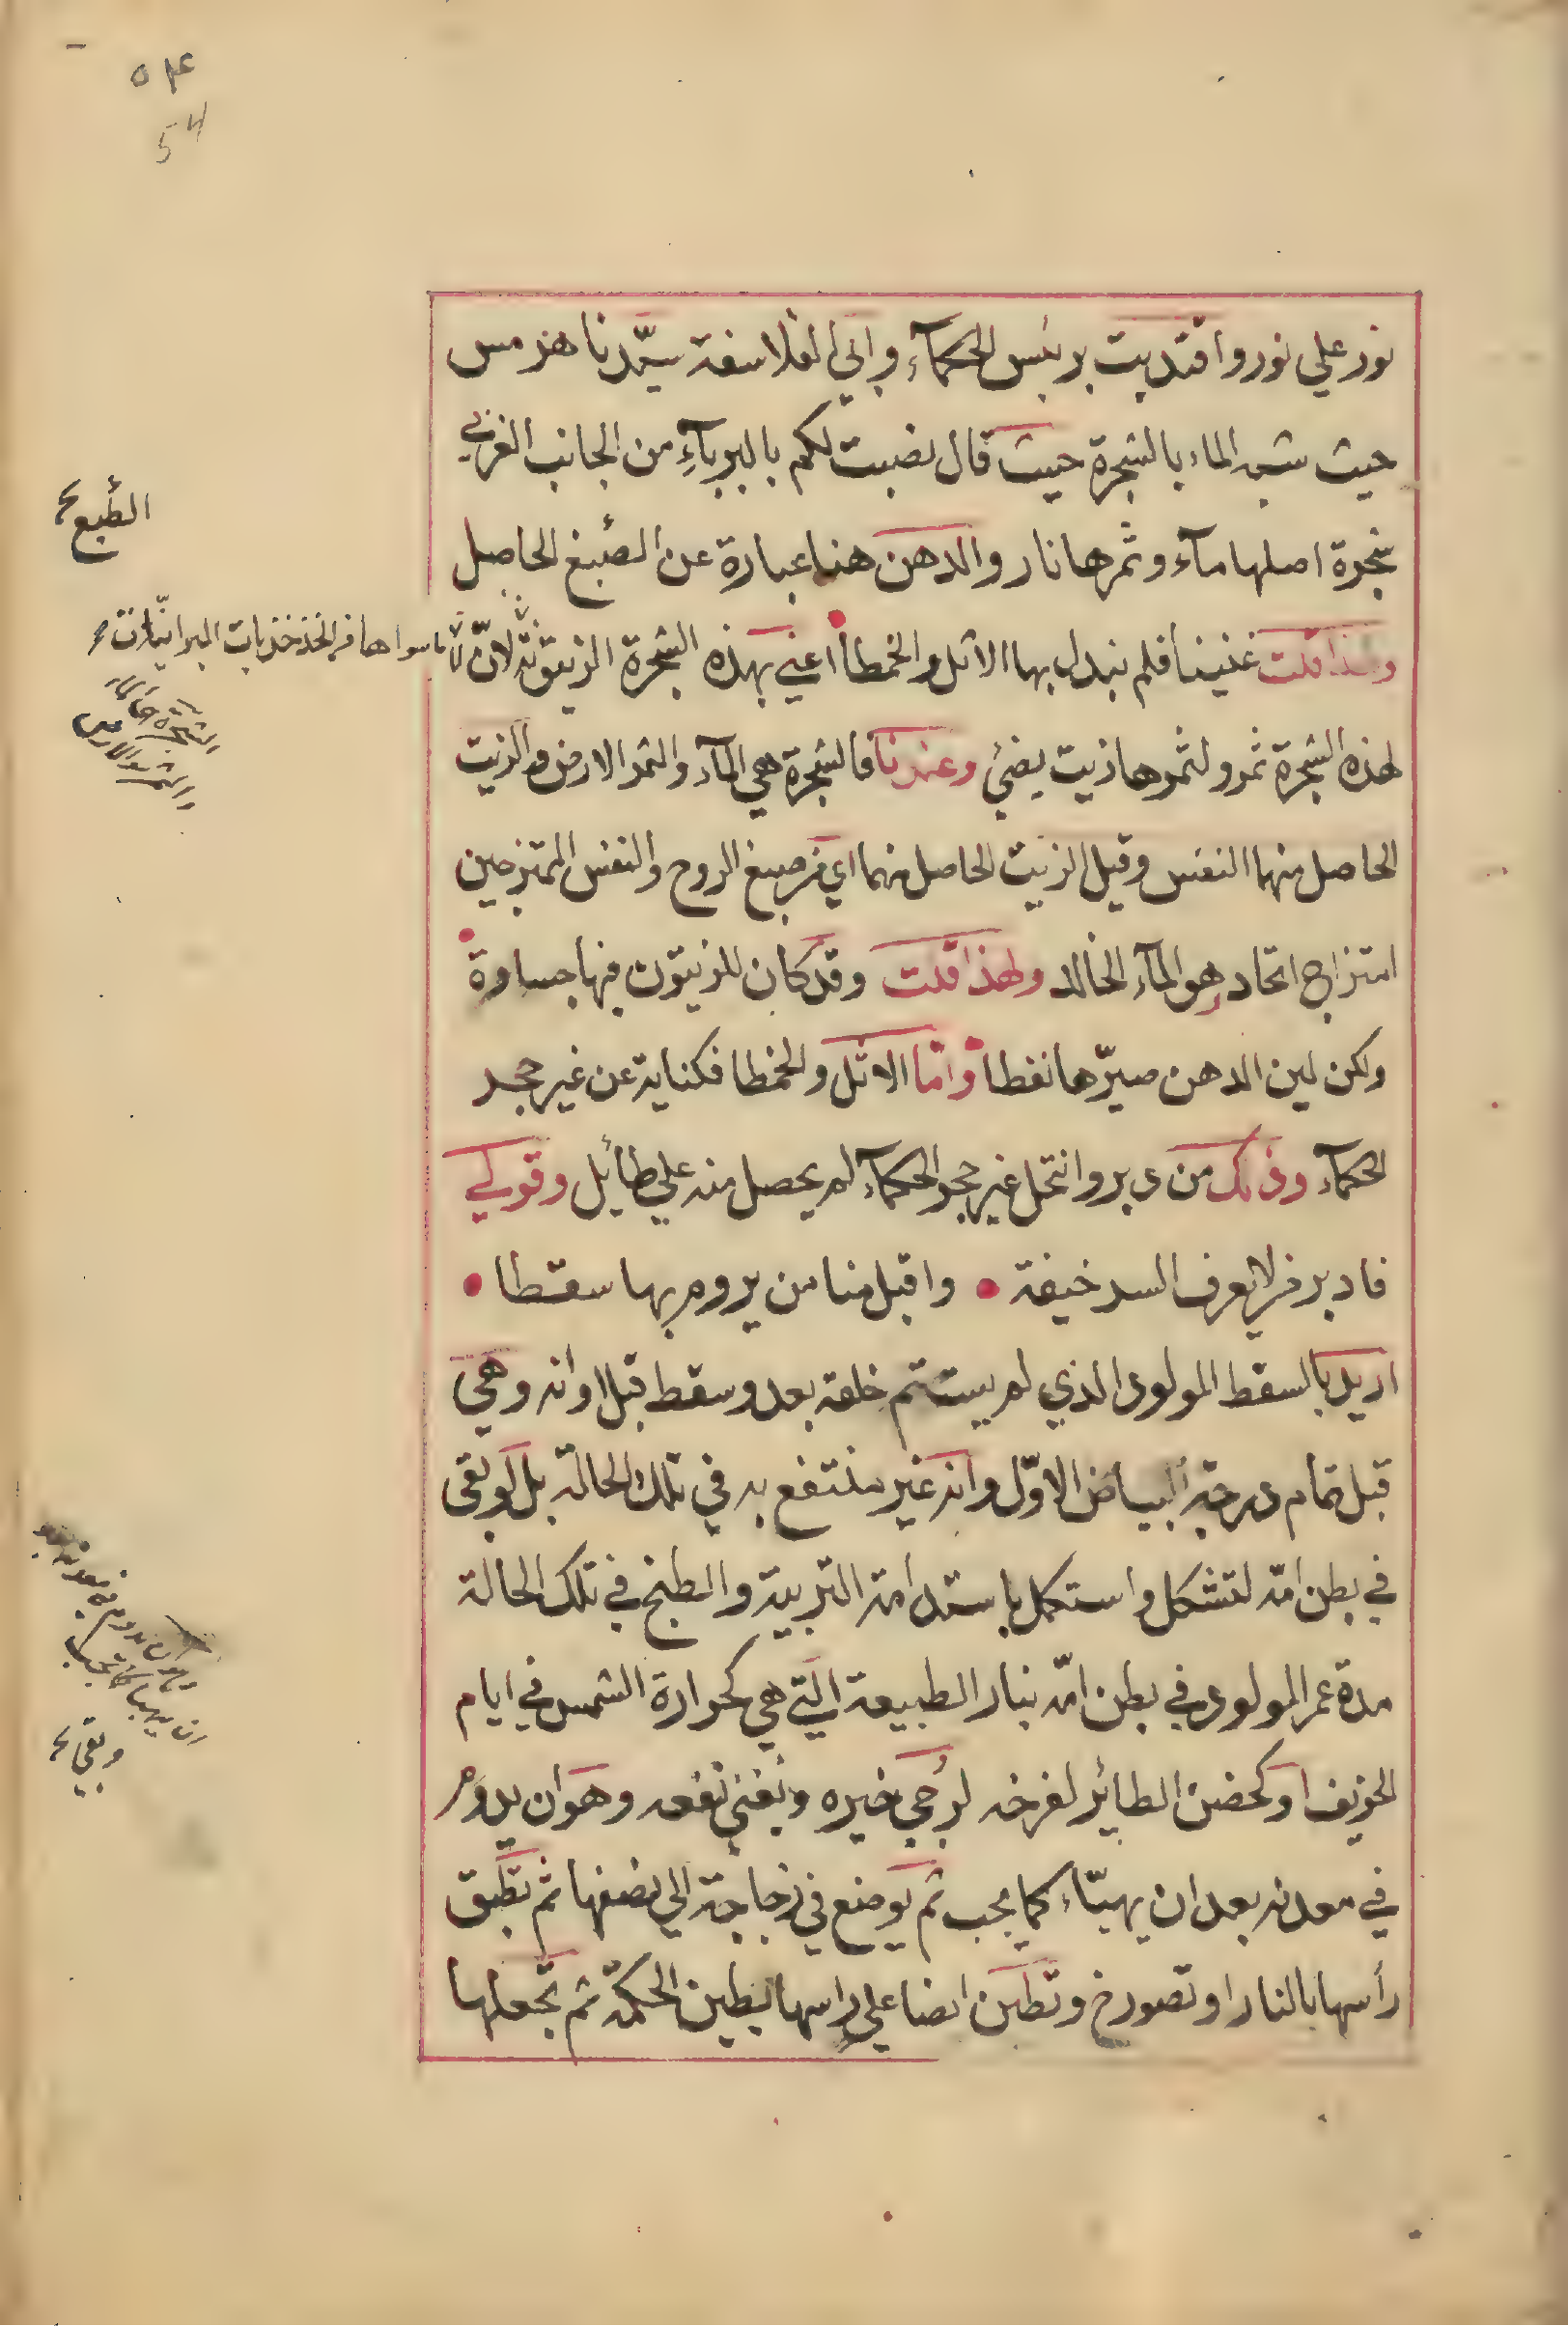 ٥٤
54
نور علي نور واقتديت برئيس الحكمآء وابي الفلاسفة سيّدنا هرمس
حيث شبه الماء بالشجرة حيث قال نصبت لكم بالبرباءِ من الجانب الغربي
شجرة اصلها مآء وثمرها نار والدهن هنا عبارة عن الصبغ الحاصل
ولهذا قلت غنينا فلم نبدل بها الاثل والخمطا اعني بهذه الشجرة الزيتونة لانّ
لهذه الشجرة ثمر ولثمرها زيت يضئ وعندنا فالشجرة هي المآء والثمر الارض والزيت
الحاصل منهما النفس وقيل الزيت الحاصل منهما اي من صبغ الروح والنفس الممتزجين
امتزاج اتحاد هو المآء الخالد ولهذا قلت وقد كان للزيتون فيها جساوة
ولكن لين الدهن صيّرها نفطا واما الاثل والخمطا فكناية عن غير حجر
الحكمآء وذلك من دبر وانتحل غير حجر الحكمآء لم يحصل منه علي طائيل وقولي
فادبر من لا يعرف السر خيفة • واقبل منا من يروم بها سقطا •
اريد بالسقط المولود الذي لم يستتم خلقه بعد وسقط قبل اوانه وهي
قبل تمام درجة البياض الاوّل وانه غير منتفع به في تلك الحالة بل لو بقى
في بطن امّه لتشكل واستكمل باستدامة التربية والطبخ في تلك الحالة
مدة عمر المولود في بطن امّه بنار الطبيعة التي هي كحرارة الشمس في ايام
الخريف او كحضن الطائر لفرخه لرُجي خيره وبغي نفعه وهو ان يدوم
في معدنه بعد ان يهيّاء كما يجب ثم يوضع في زجاجة الي نصفها ثم تطبق
رأسها بالنار او تصورخ وتطين ايضا علي راسها بطين الحكمة ثم تجعلها
الطبع
ما سواها من
الشجرة هي الماء
والثمر الارض
ان يهيا كما يجب
وبقي